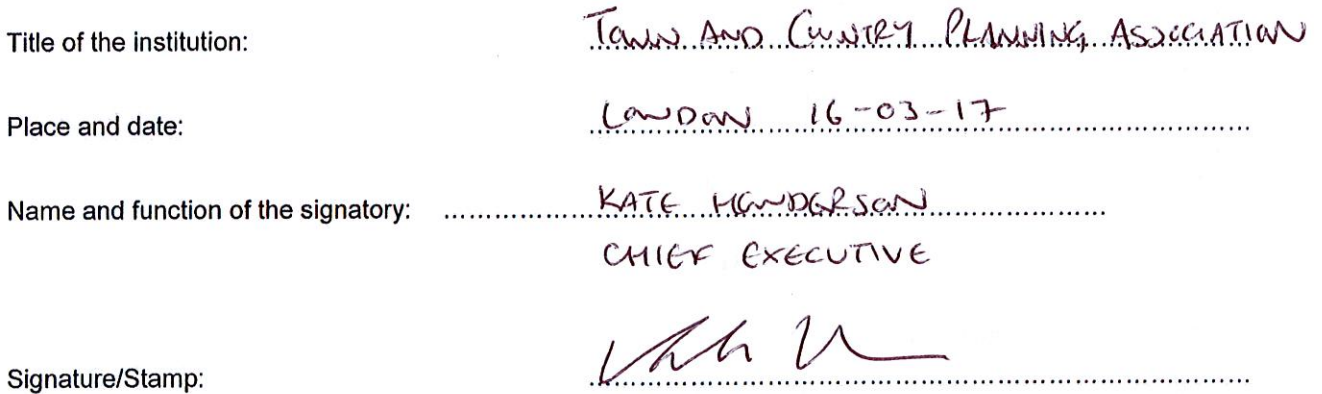 Title of the institution: TOWN AND COUNTRY PLANNING ASSOCIATION
Place and date: LONDON 16-03-17
Name and function of the signatory: KATE HENDERSON
CHIEF EXECUTIVE
Signature/Stamp: